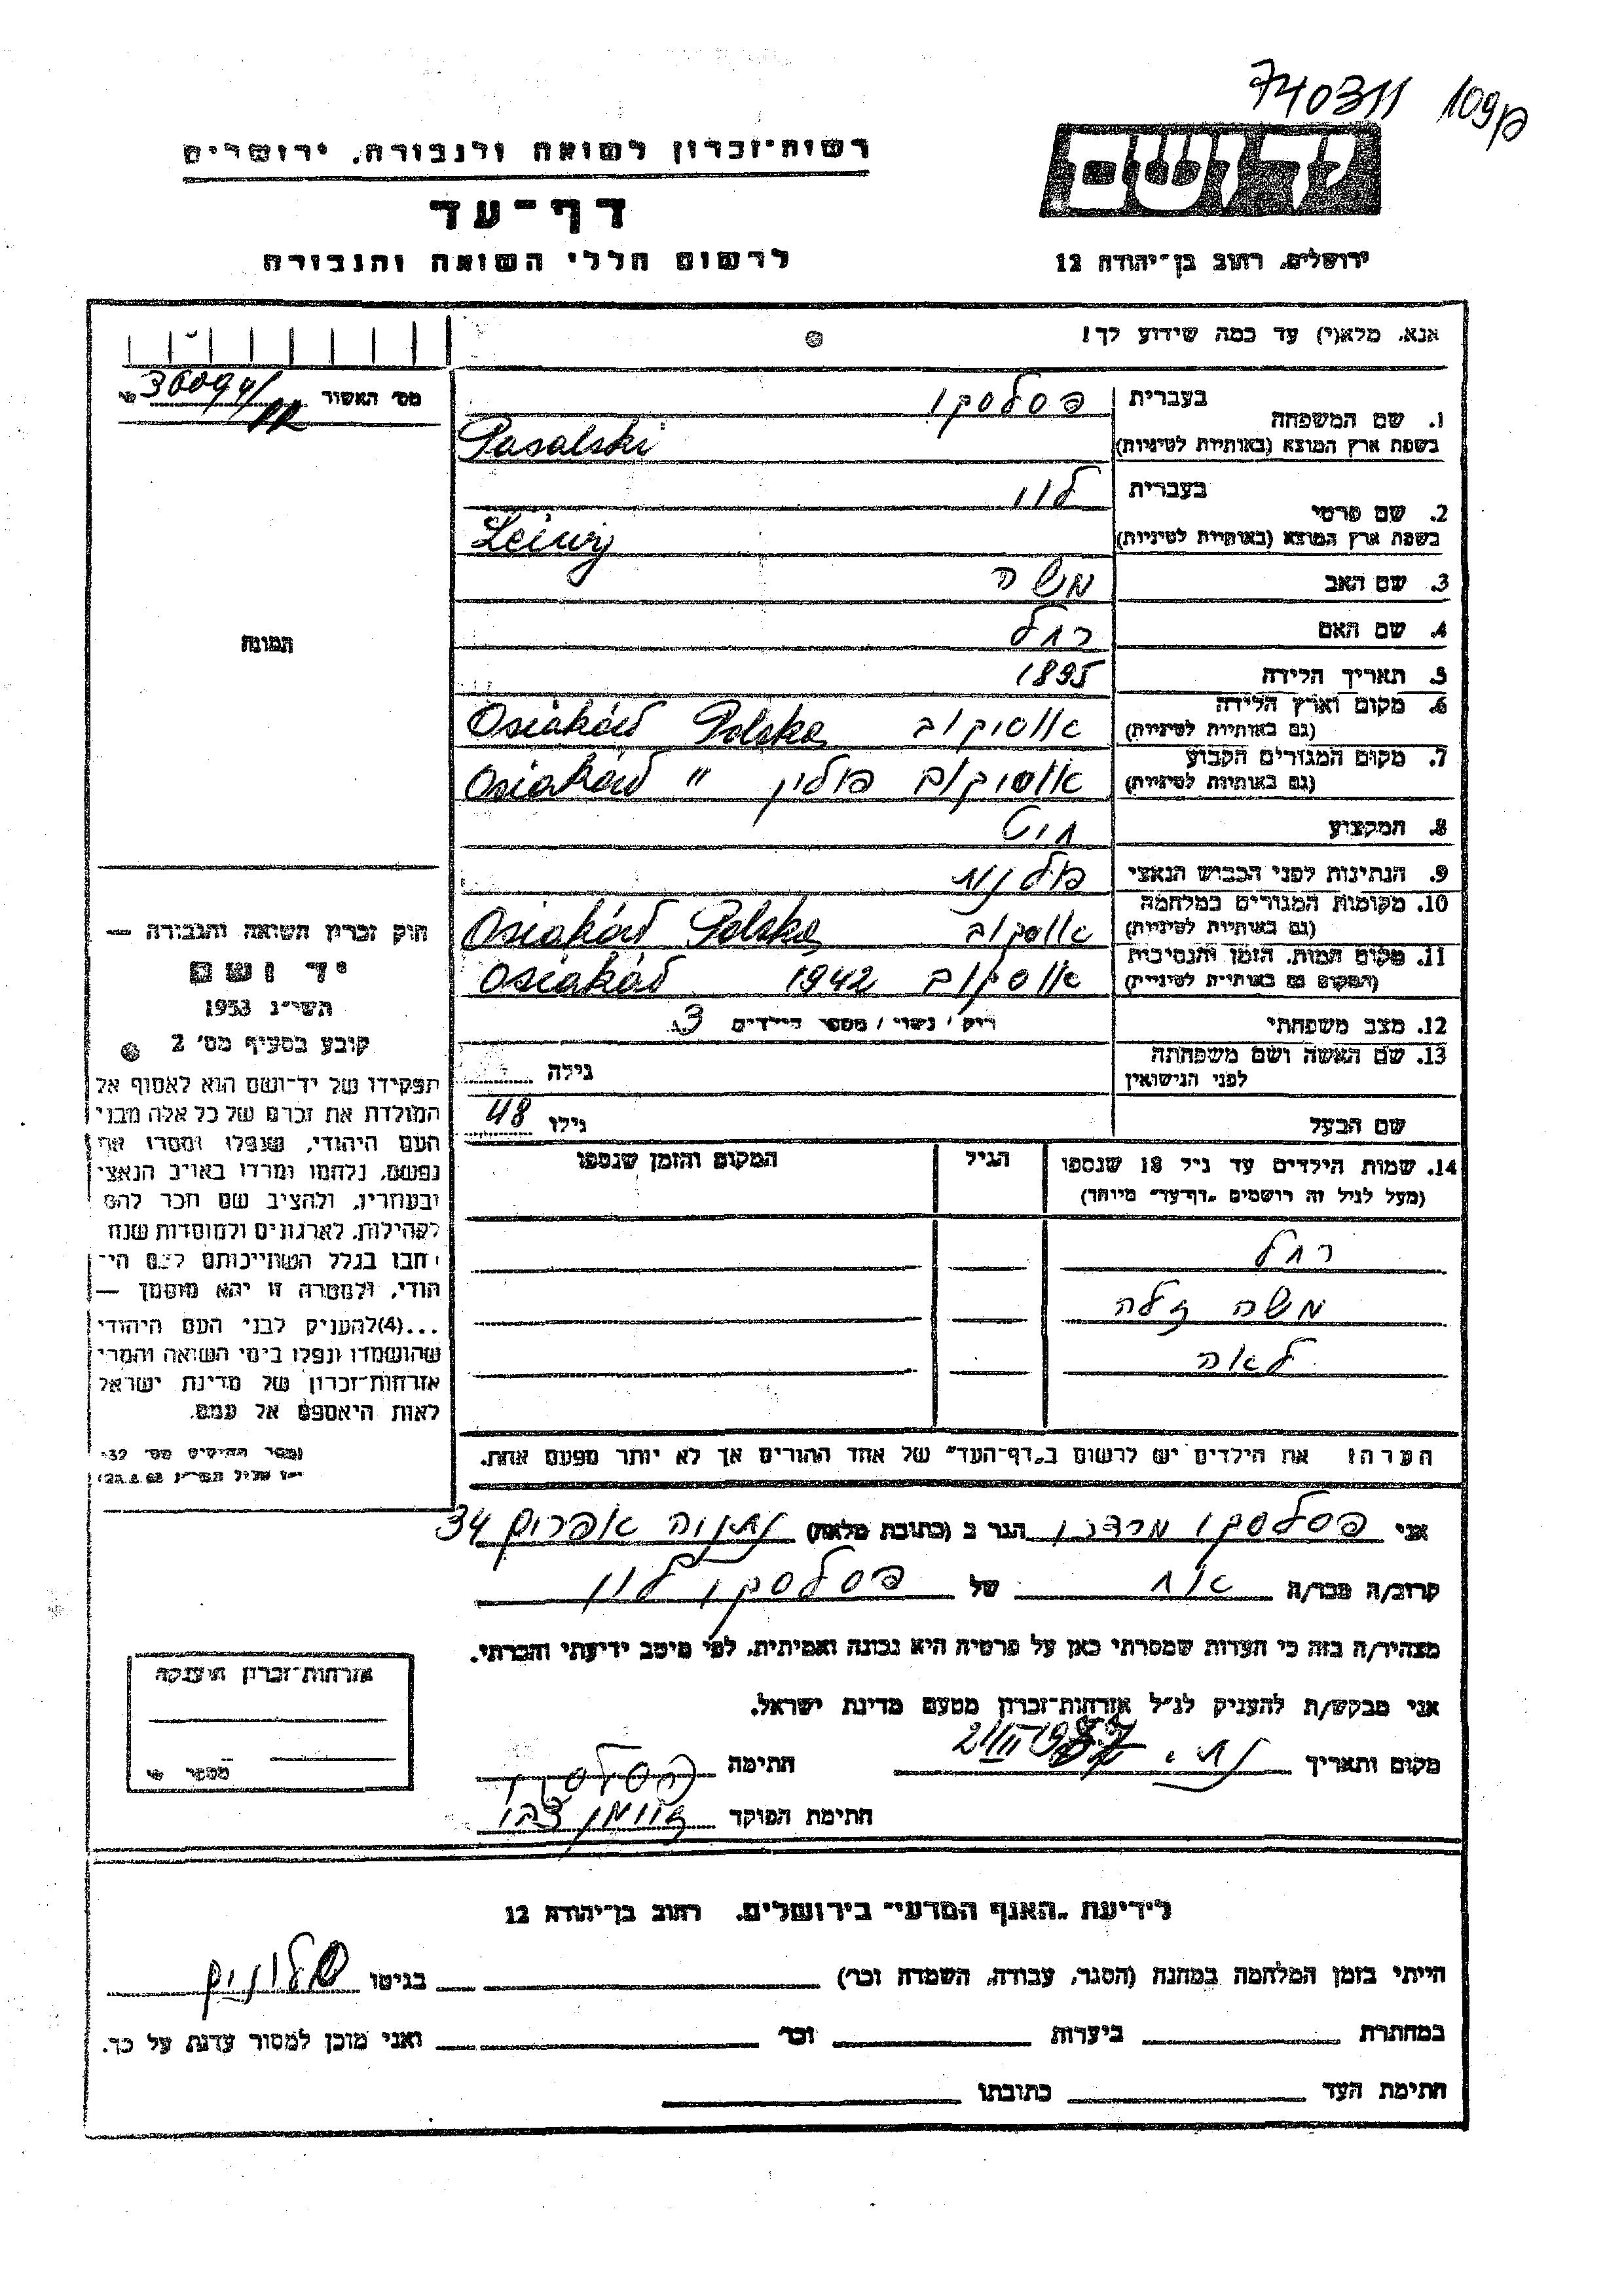 740311 109ק
רשות-זכרון לשואה ולגבורה, ירושלים
יד ושם
דף-עד
לרשום חללי השואה והגבורה
ירושלים, רחוב בן-יהודה 12
אנא, מלא(י) עד כמה שידוע לך!
מס' האשור 36094/
1. שם המשפחה
בעברית פסלסקי
בשפת ארץ המוצא (באותיות לטיניות) Pasalski
2. שם פרטי
בעברית לוי
בשפת ארץ המוצא (באותיות לטיניות)
3. שם האב משה
4. שם האם רחל
5. תאריך הלידה 1895
6. מקום וארץ הלידה אוסיקוב Osiaków Polska
(גם באותיות לטיניות)
7. מקום המגורים הקבוע אוסיקוב פולין " Osiaków
(גם באותיות לטיניות)
8. המקצוע חיט
9. הנתינות לפני הכבוש הנאצי
10. מקומות המגורים במלחמה אוסקוב Osiaków Polska
(גם באותיות לטיניות)
11. מקום המות, הזמן והנסיבות אוסקוב 1942 Osiaków
(המקום גם באותיות לטיניות)
12. מצב משפחתי רוק / נשוי / מספר הילדים 3
13. שם האשה ושם משפחתה
לפני הנישואין
גילה
שם הבעל גילו 48
14. שמות הילדים עד גיל 18 שנספו הגיל המקום והזמן שנספו
(מעל לגיל זה רושמים "דף-עד" מיוחד)
רחל
משה
לאה
הערה: את הילדים יש לרשום ב"דף-העד" של אחד ההורים אך לא יותר מפעם אחת.
תמונה
חוק זכרון השואה והגבורה —
יד ושם
תשי"ג 1953
קובע בסעיף מס' 2
תפקידו של יד-ושם הוא לאסוף אל
המולדת את זכרם של כל אלה מבני
העם היהודי, שנפלו ומסרו את
נפשם, נלחמו ומרדו באויב הנאצי
ובעוזריו, ולהציב שם וזכר להם
לקהילות, לארגונים ולמוסדות שנח
רבו בגלל השתייכותם לעם הי-
הודי, ולמטרה זו יהא מוסמך —
...(4) להעניק לבני העם היהודי
שהושמדו ונפלו בימי השואה והמרי
אזרחות-זכרון של מדינת ישראל
לאות היאספם אל עמם.
אני פסלסקי מרדכי הגר ב (כתובת מלאה) נתניה אפרים 34
קרוב/ה מכר/ה אח של פסלסקי לוי
מצהיר/ה בזה כי העדות שמסרתי כאן על פרטיה היא נכונה ואמיתית, לפי מיטב ידיעתי והכרתי.
אני מבקש/ת להעניק לנ"ל אזרחות-זכרון מטעם מדינת ישראל.
מקום ותאריך חתימה פסלסקי
חתימת הפוקד
אזרחות-זכרון הוענקה
מספר
לידיעת "האגף המדעי" בירושלים, רחוב בן-יהודה 12
הייתי בזמן המלחמה במחנה (הסגר, עבודה, השמדה וכו') בגיטו
במחתרת ביערות וכו' ואני מוכן למסור עדות על כך.
חתימת העד כתובתו